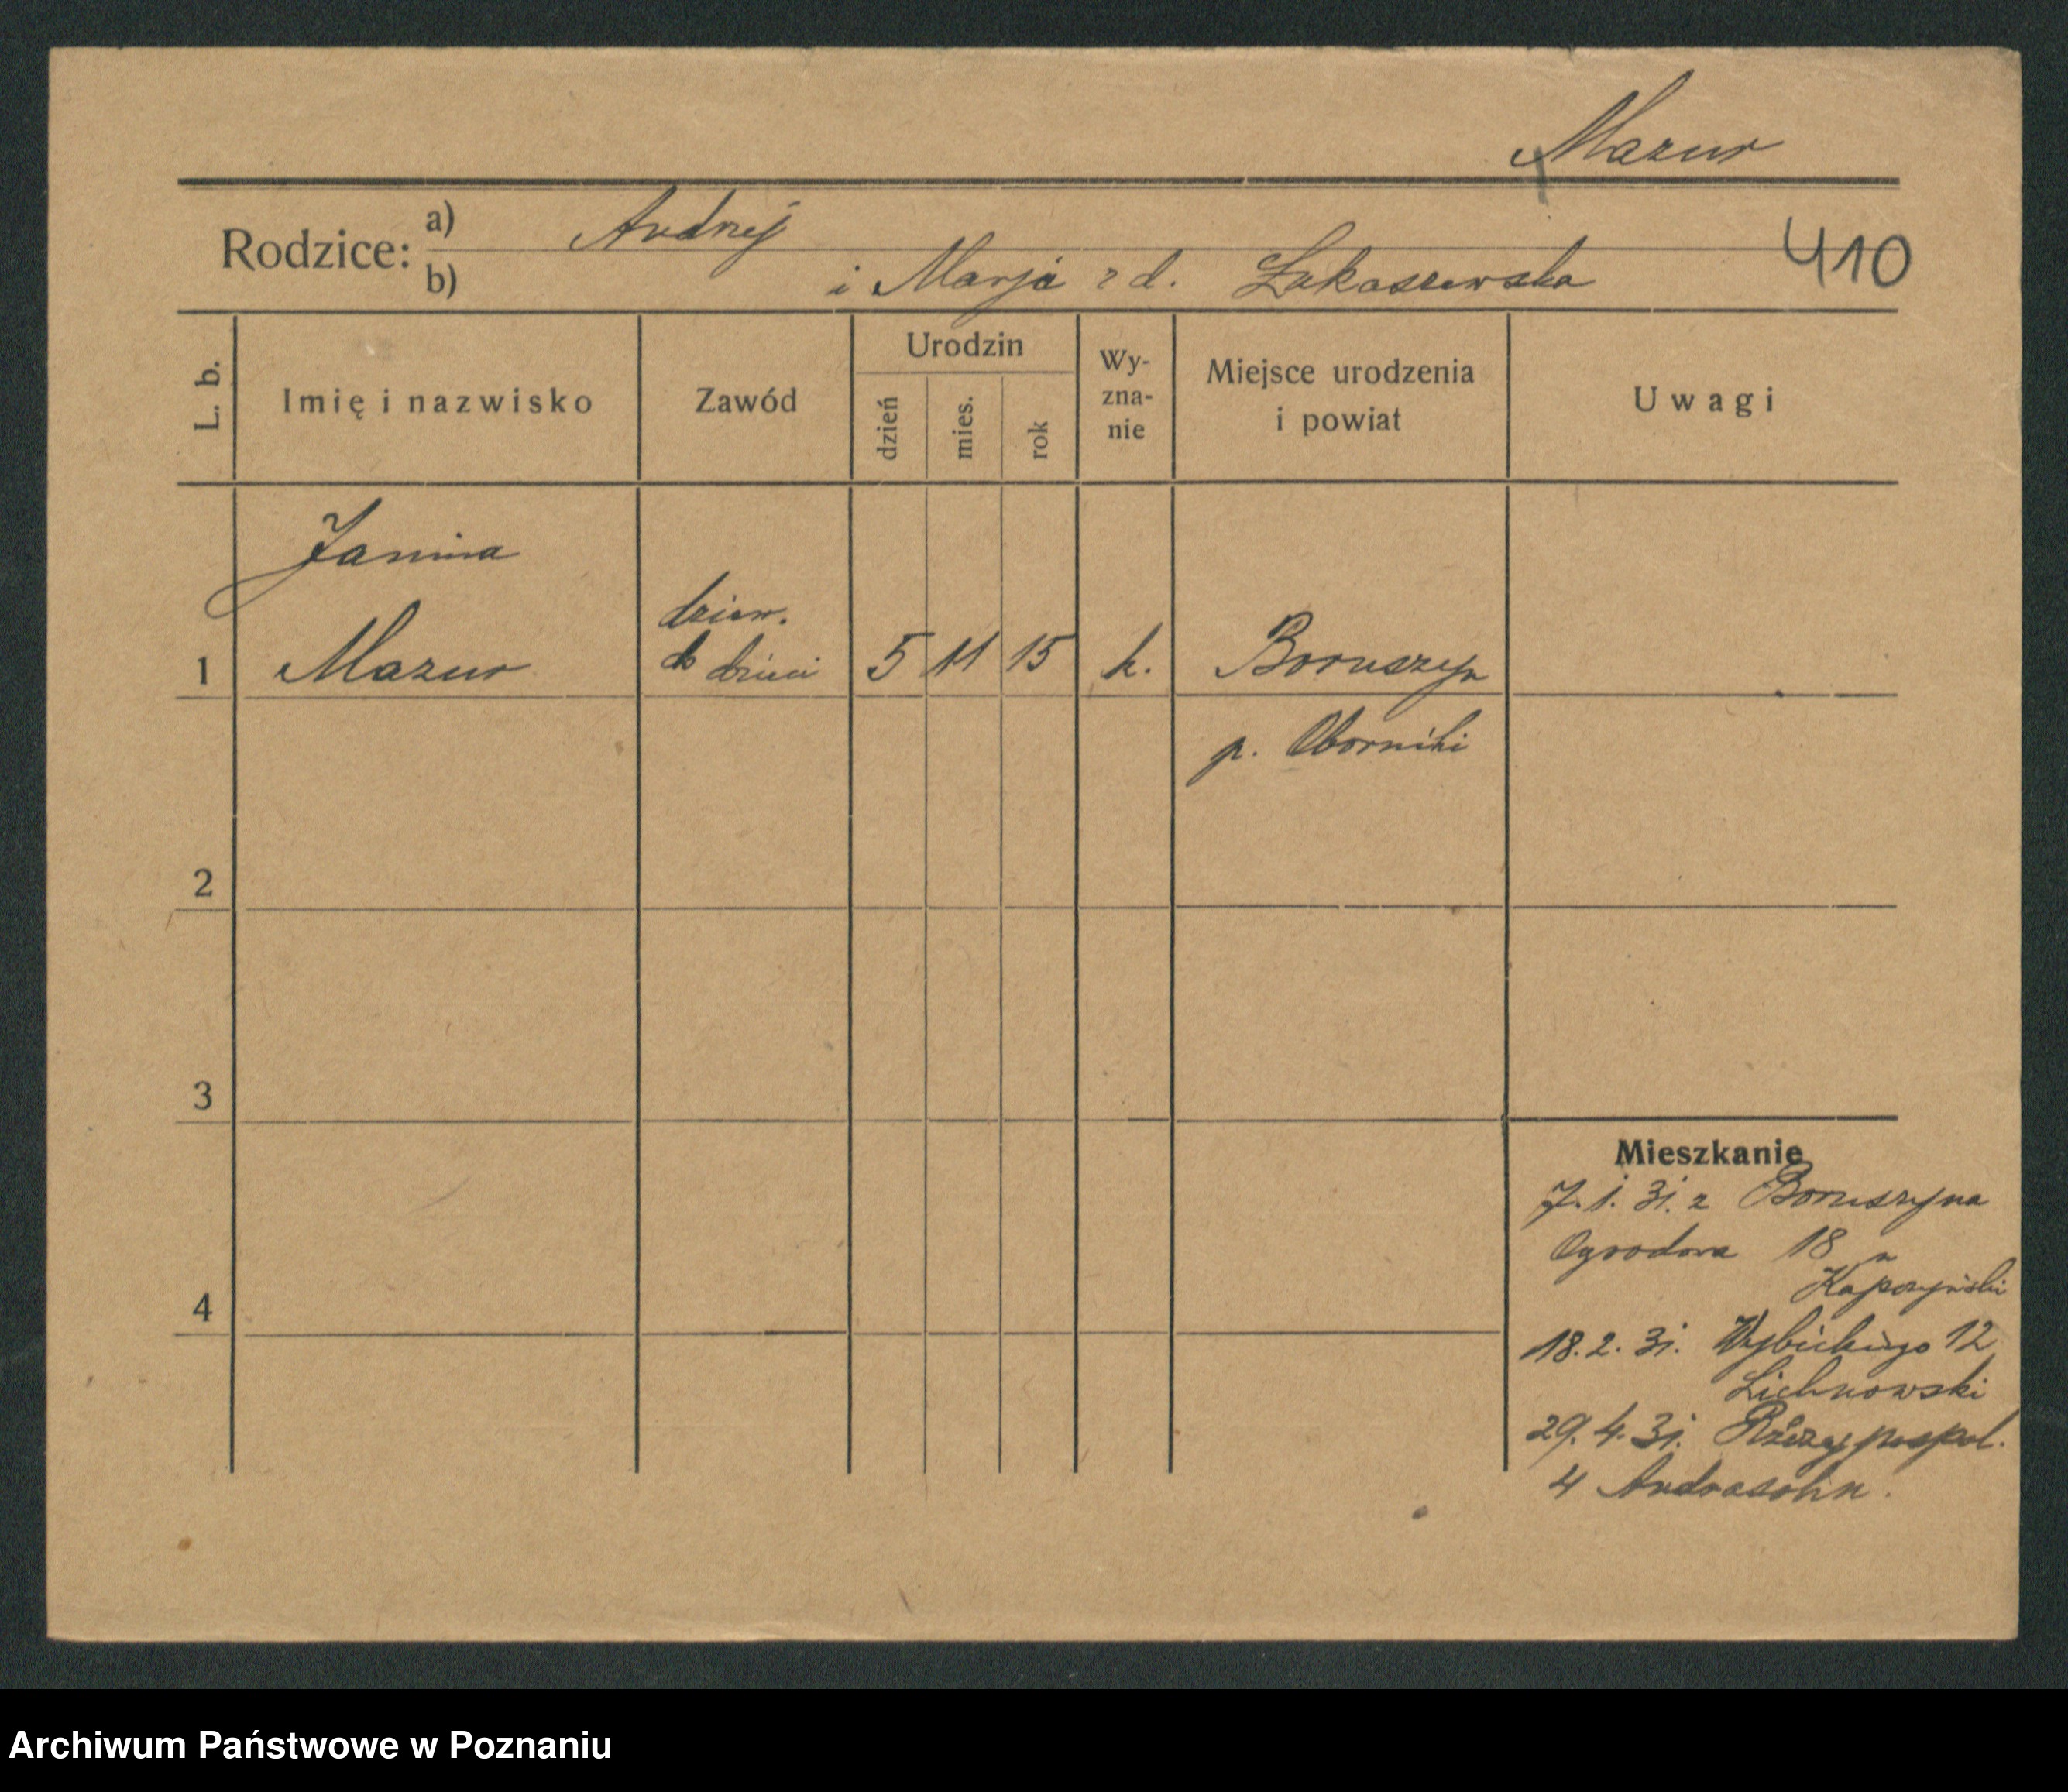 Mazur
Rodzice: a) Andrzej
b) i Marja z d. Łukaszewska
410
L. b.
Imię i nazwisko
Zawód
Urodzin
dzień
mies.
rok
Wy-
zna-
nie
Miejsce urodzenia
i powiat
Uwagi
Janina
1 Mazur
dziew.
do dzieci
5 11 15 k. Boruszyn
p. Oborniki
2
3
4
Mieszkanie
7.1.31. z Boruszyna
Ogrodowa 18
18.2.31. Wybickiego 12
Lichnowski
29.4.31. Rzeczypospol.
4
Archiwum Państwowe w Poznaniu